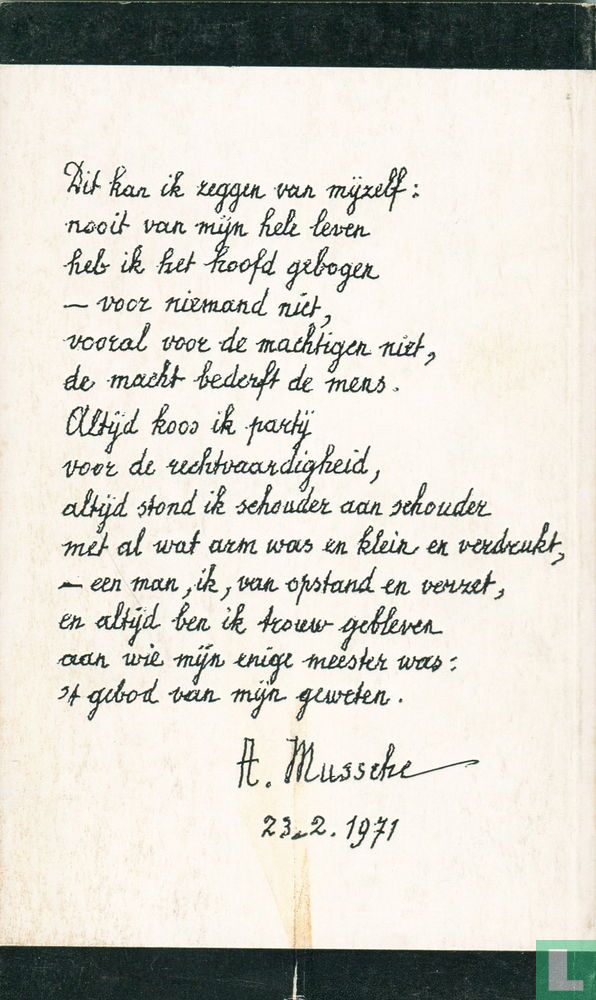 Dit kan ik zeggen van mijzelf:
nooit van mijn hele leven
heb ik het hoofd gebogen
– voor niemand niet,
vooral voor de machtigen niet,
de macht bederft de mens.
Altijd koos ik partij
voor de rechtvaardigheid,
altijd stond ik schouder aan schouder
met al wat arm was en klein en verdrukt,
– een man, ik, van opstand en verzet,
en altijd ben ik trouw gebleven
aan wie mijn enige meester was:
't gebod van mijn geweten.
A. Mussche
23.2.1971
L